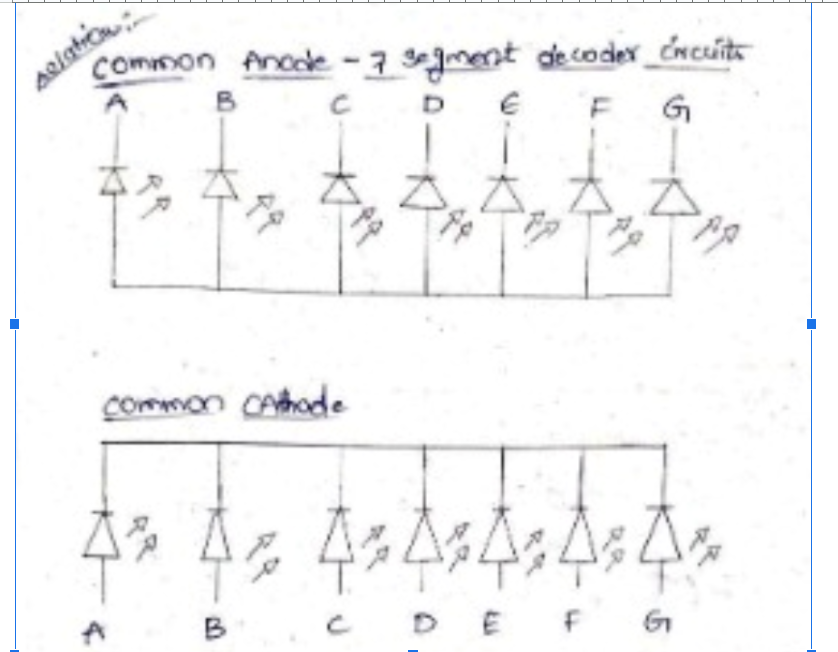 Solution:-
Common Anode - 7 segment decoder circuits
A B C D E F G
Common CAthode
A B C D E F G